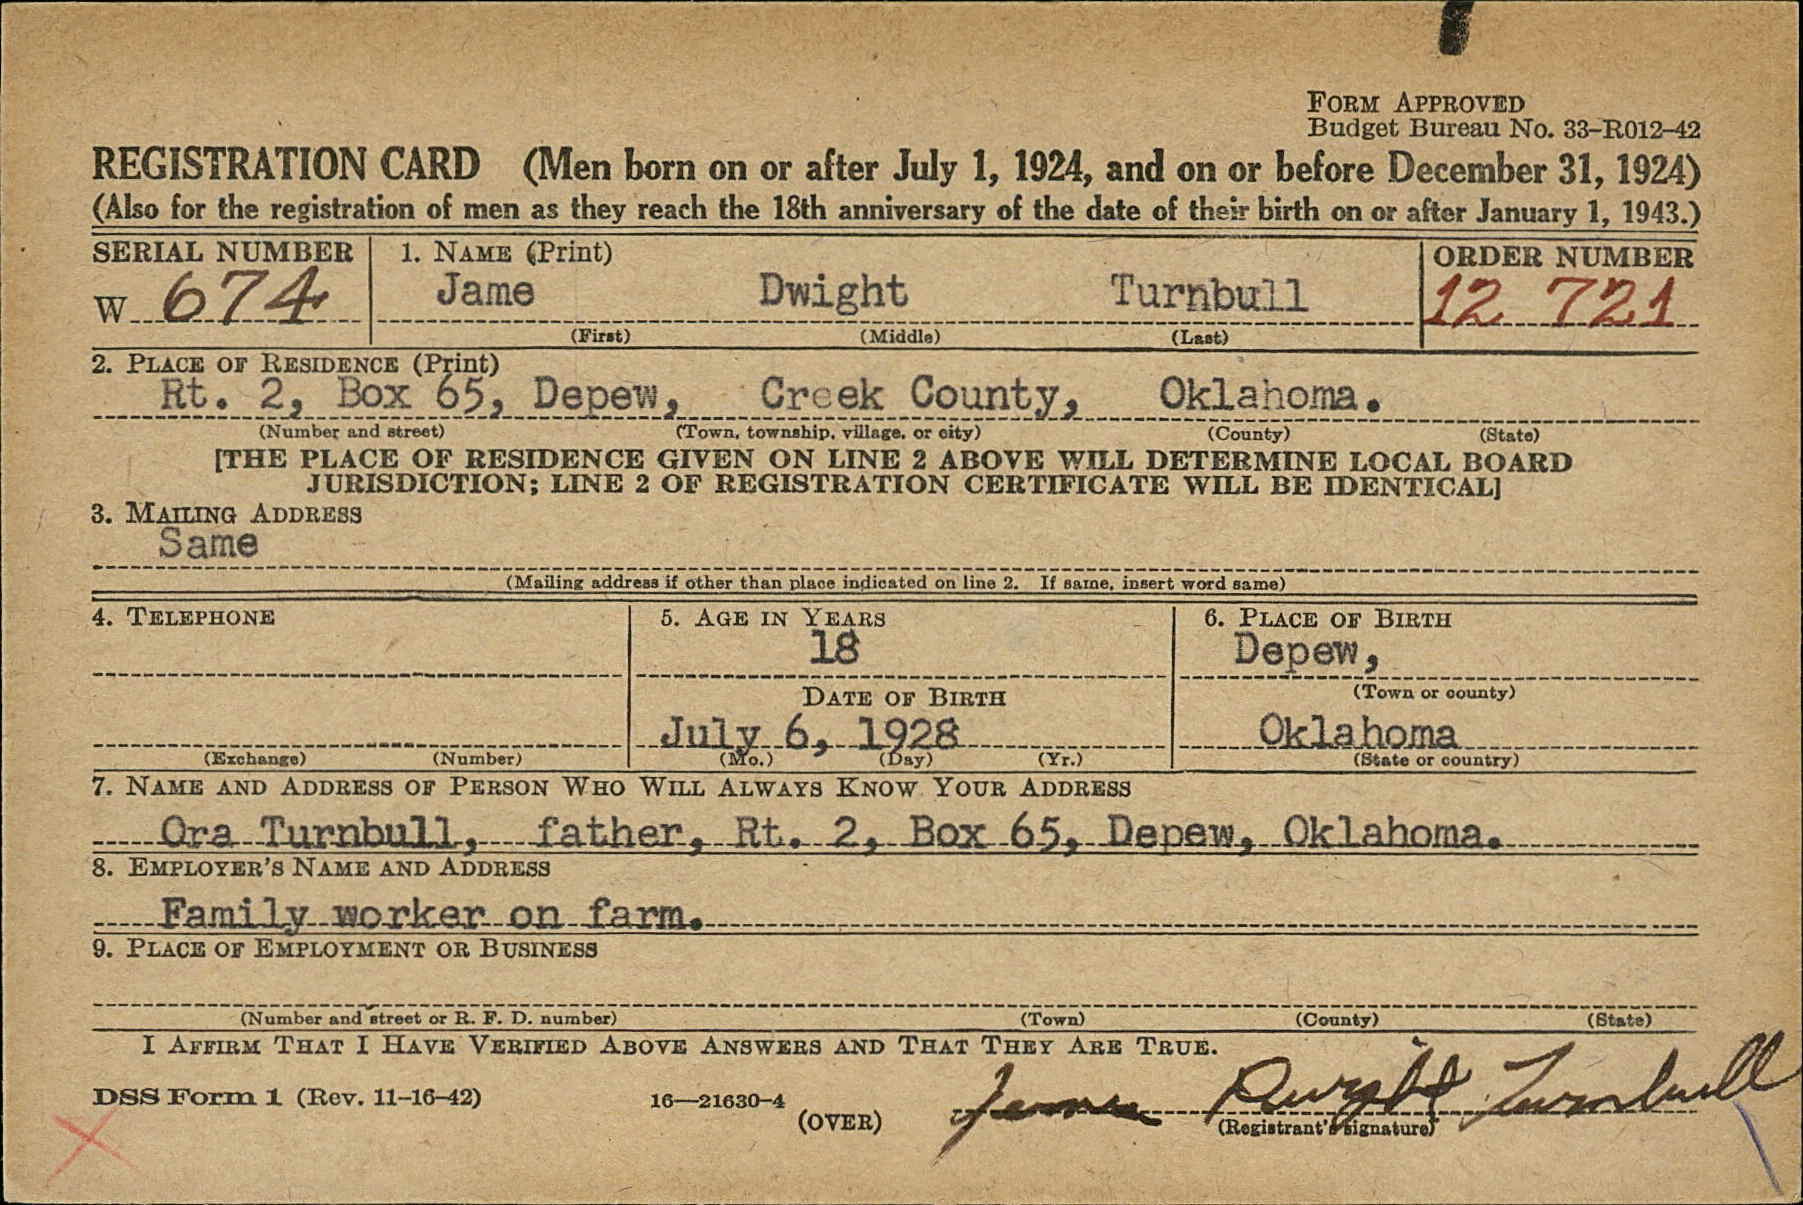 FORM APPROVED
Budget Bureau No. 33-R012-42
REGISTRATION CARD (Men born on or after July 1, 1924, and on or before December 31, 1924)
(Also for the registration of men as they reach the 18th anniversary of the date of their birth on or after January 1, 1943.)
SERIAL NUMBER 1. NAME (Print) ORDER NUMBER
W 674 Jame Dwight Turnbull 12 721
(First) (Middle) (Last)
2. PLACE OF RESIDENCE (Print)
Rt. 2, Box 65, Depew, Creek County, Oklahoma.
(Number and street) (Town, township, village, or city) (County) (State)
[THE PLACE OF RESIDENCE GIVEN ON LINE 2 ABOVE WILL DETERMINE LOCAL BOARD
JURISDICTION; LINE 2 OF REGISTRATION CERTIFICATE WILL BE IDENTICAL]
3. MAILING ADDRESS
Same
(Mailing address if other than place indicated on line 2. If same, insert word same)
4. TELEPHONE 5. AGE IN YEARS 6. PLACE OF BIRTH
18 Depew,
DATE OF BIRTH (Town or county)
July 6, 1928 Oklahoma
(Exchange) (Number) (Mo.) (Day) (Yr.) (State or country)
7. NAME AND ADDRESS OF PERSON WHO WILL ALWAYS KNOW YOUR ADDRESS
Ora Turnbull, father, Rt. 2, Box 65, Depew, Oklahoma.
8. EMPLOYER'S NAME AND ADDRESS
Family worker on farm.
9. PLACE OF EMPLOYMENT OR BUSINESS
(Number and street or R. F. D. number) (Town) (County) (State)
I AFFIRM THAT I HAVE VERIFIED ABOVE ANSWERS AND THAT THEY ARE TRUE.
DSS Form 1 (Rev. 11-16-42) 16—21630-4 (OVER) James Dwight Turnbull
(Registrant's signature)